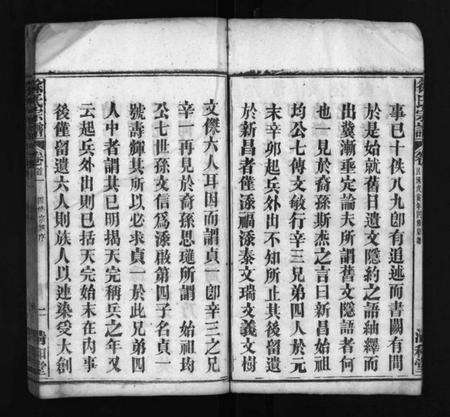 事已十佚八九卽有追述而書闕有間
於是始就舊日遺文隱約之語紬繹而
出冀漸垂定論夫所謂舊文隱語者何
也一見於裔孫斯燕之言曰新昌始祖
均公七傳文敏行辛三兄弟四人於元
末辛卯起兵外出不知所止其後留遺
於新昌者僅添福添泰文瑞支義文樹
文傑六人耳因而謂貞一卽辛三之兄
辛一再見於裔孫思璡所謂 始祖均
公七世孫文信爲添啟第四子名貞一
號壽輝其所以必求貞一於此兄弟四
人中者謂其已明揭天完稱兵之年又
云起兵外出則已括天完始末在內事
後僅留遺六人則族人以連染受大創
清和堂